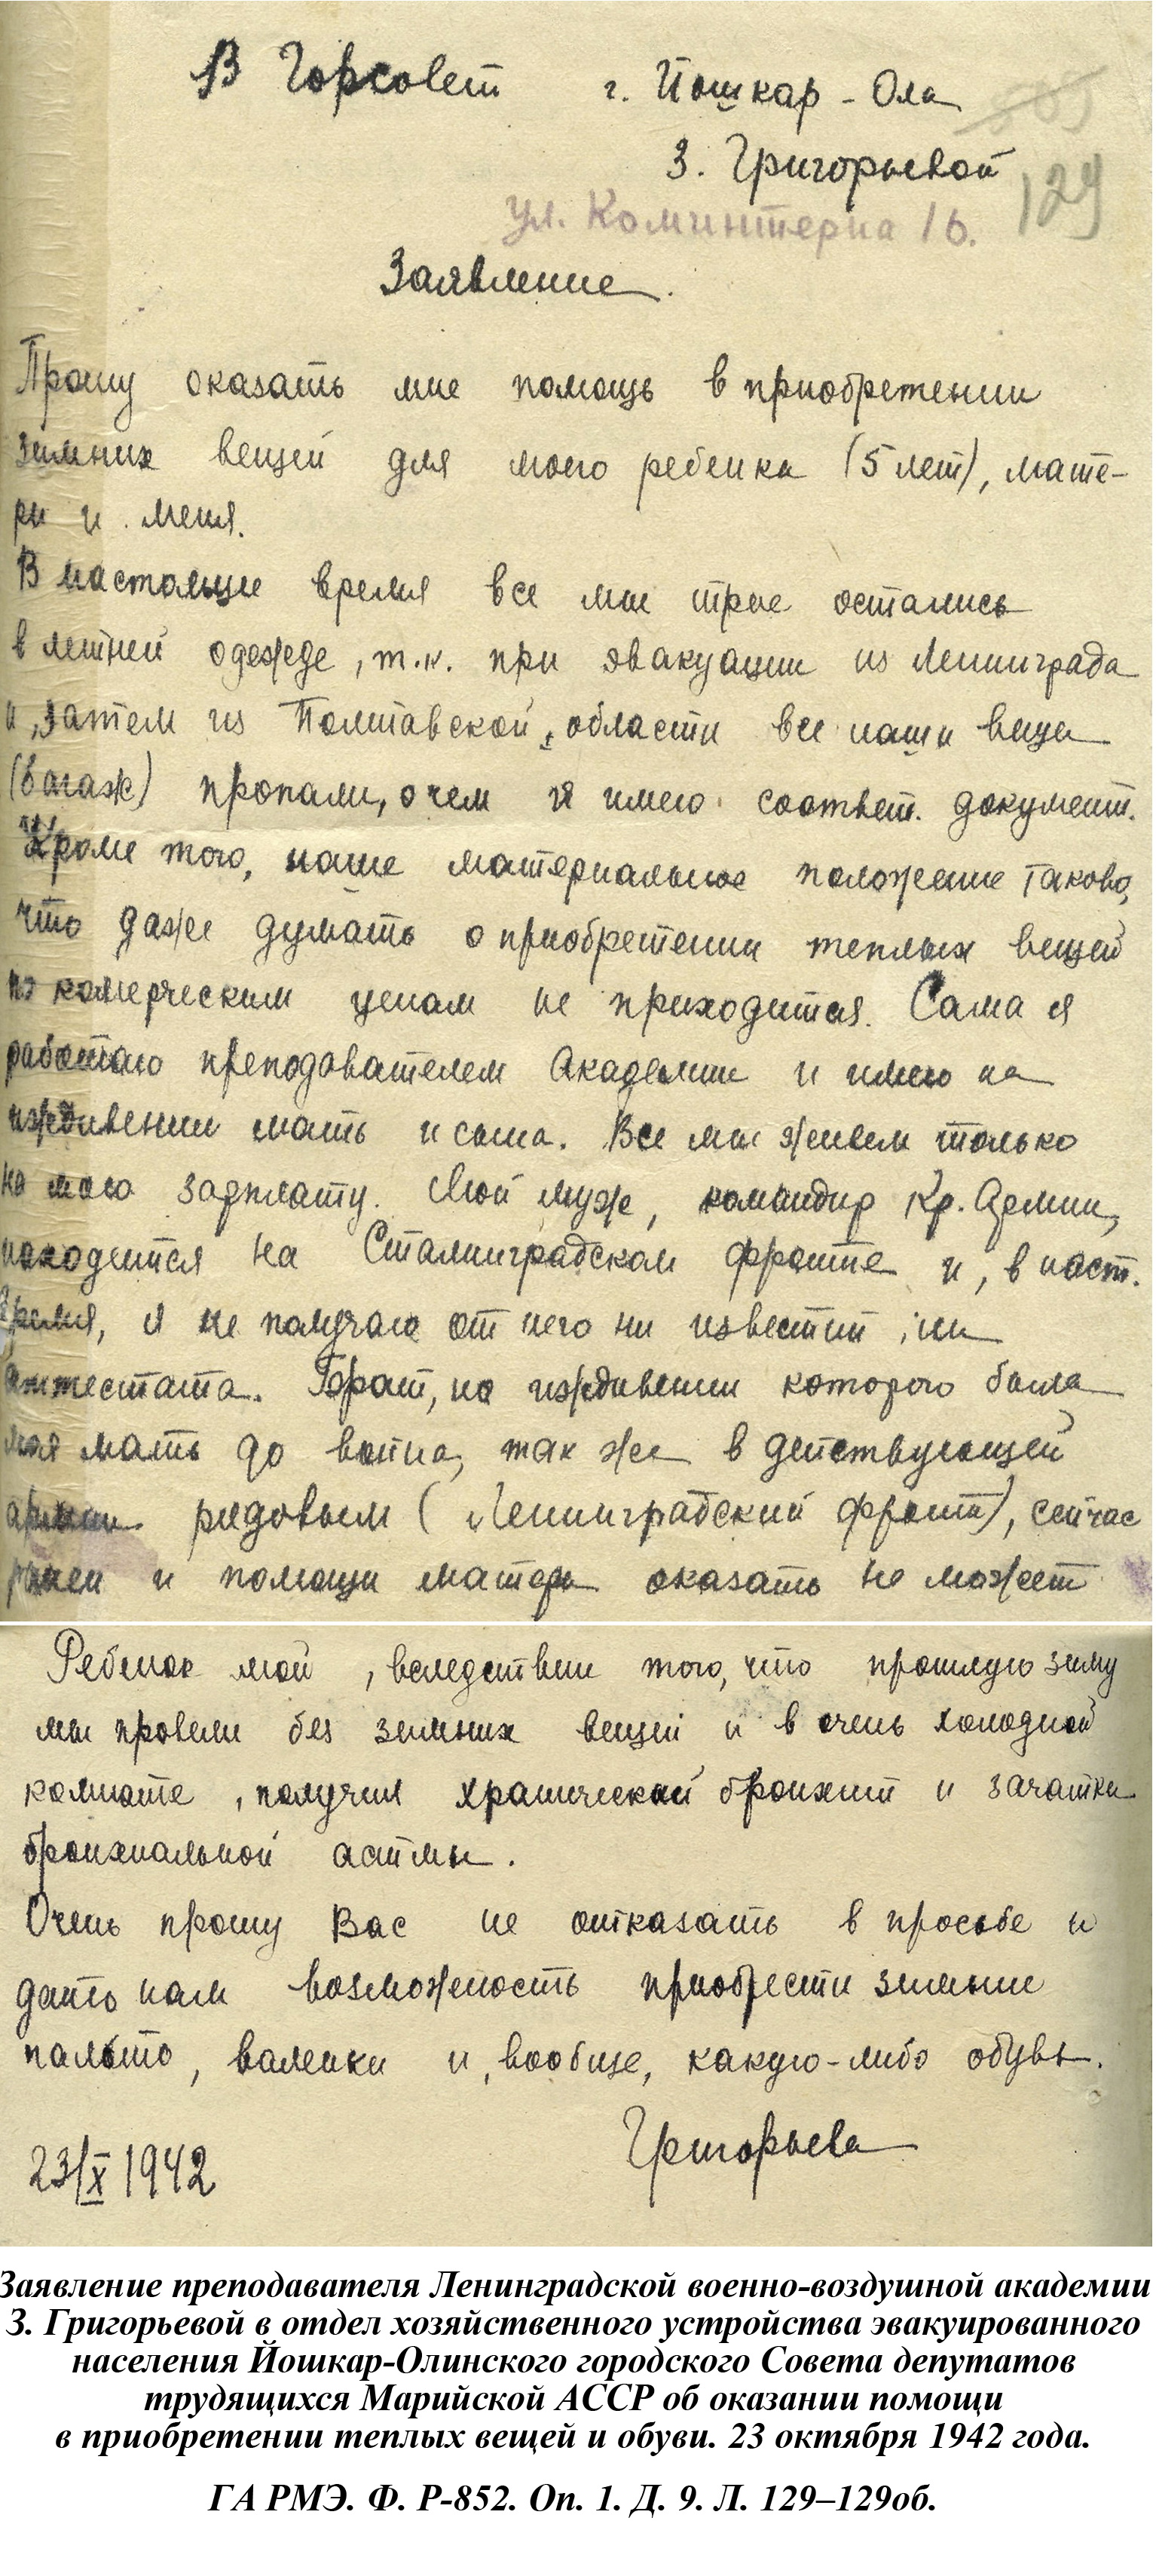 В Горсовет г. Йошкар-Ола
З. Григорьевой
129
ул. Коминтерна 16.
Заявление.
Прошу оказать мне помощь в приобретении
зимних вещей для моего ребенка (5 лет), мате-
ри и меня.
В настоящее время все мы трое остались
в летней одежде, т.к. при эвакуации из Ленинграда
и, затем из Полтавской области все наши вещи
(багаж) пропали, о чем я имею соответ. документ.
Кроме того, наше материальное положение таково,
что даже думать о приобретении теплых вещей
по комерческим ценам не приходится. Сама я
работаю преподавателем Академии и имею на
иждивении мать и сына. Все мы живем только
на мою зарплату. Мой муж, командир Кр. Армии,
находится на Сталинградском фронте и, в наст.
время, я не получаю от него ни известий, ни
аттестата. Брат, на иждивении которого была
моя мать до войны, так же в действующей
армии рядовым (Ленинградский фронт), сейчас
ранен и помощи матери оказать не может
Ребенок мой, вследствии того, что прошлую зиму
мы провели без зимних вещей и в очень холодной
комнате, получил хронический бронхит и зачатки
бронхиальной астмы.
Очень прошу Вас не отказать в просьбе и
дать нам возможность приобрести зимние
пальто, валенки и, вообще, какую-либо обувь.
Григорьева
23/X 1942
Заявление преподавателя Ленинградской военно-воздушной академии
З. Григорьевой в отдел хозяйственного устройства эвакуированного
населения Йошкар-Олинского городского Совета депутатов
трудящихся Марийской АССР об оказании помощи
в приобретении теплых вещей и обуви. 23 октября 1942 года.
ГА РМЭ. Ф. Р-852. Оп. 1. Д. 9. Л. 129–129об.